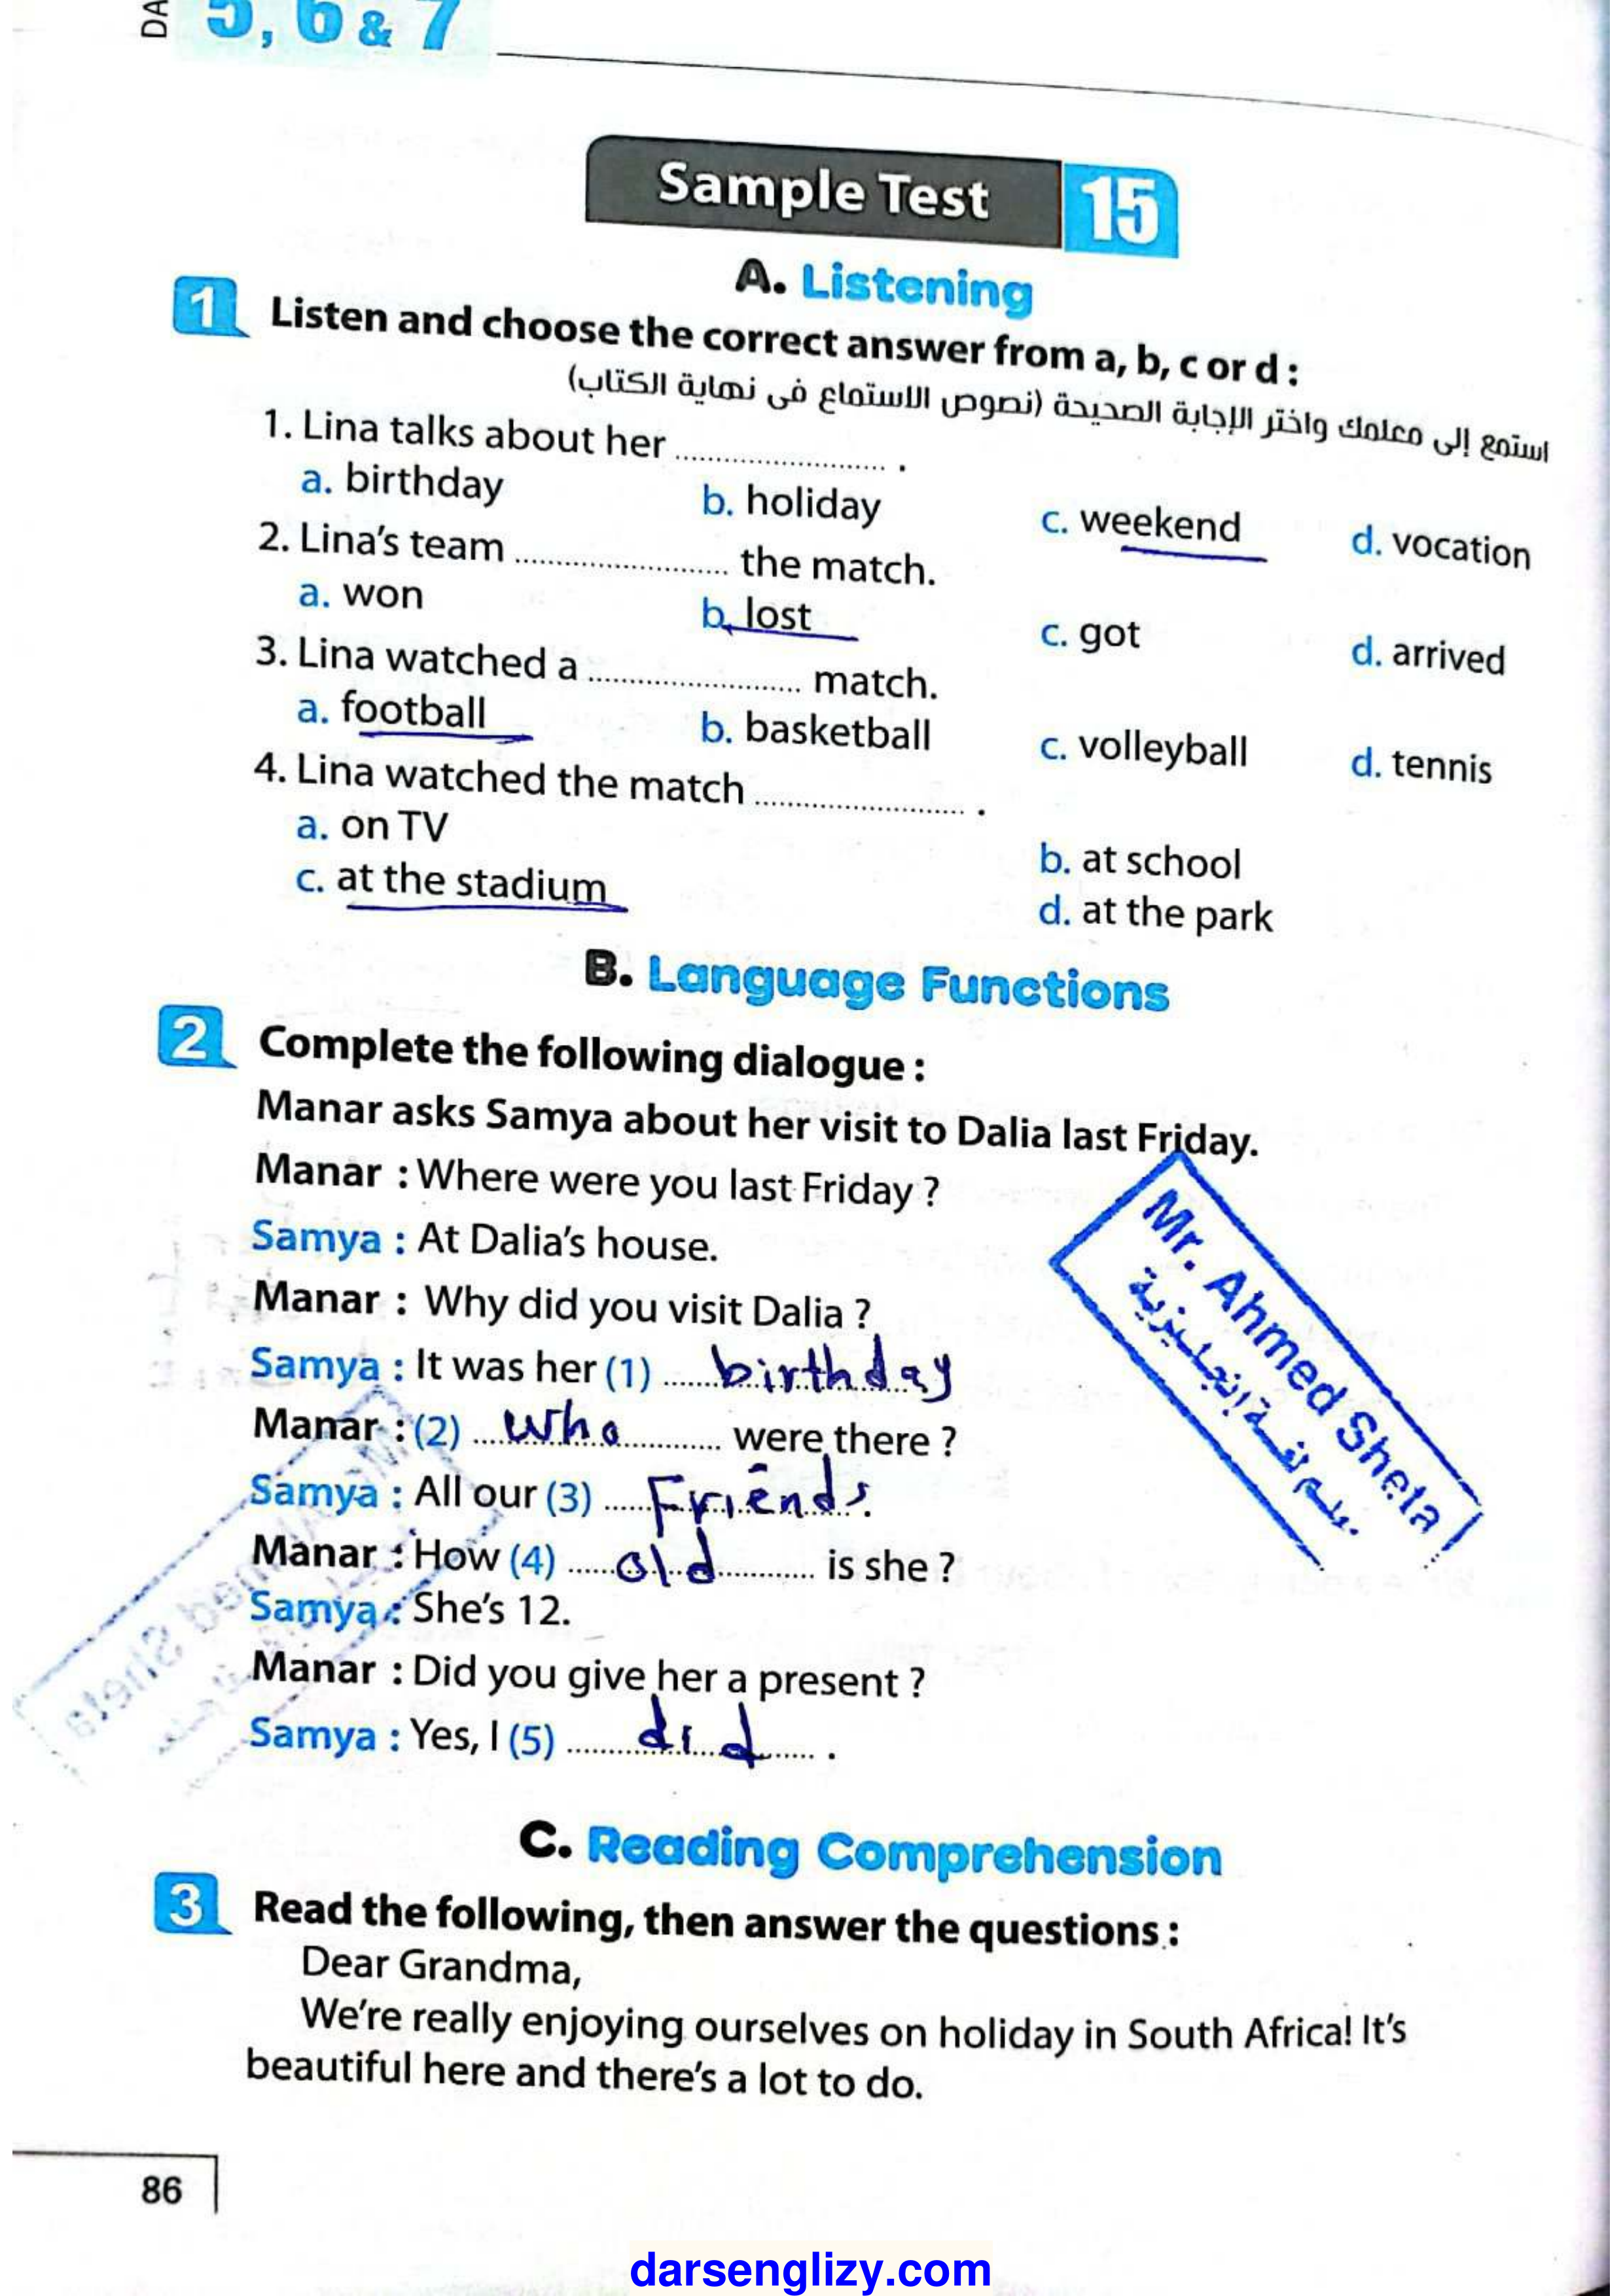 DA
5, 6 & 7
Sample Test 15
A. Listening
1 Listen and choose the correct answer from a, b, c or d :
استمع إلى معلمك واختر الإجابة الصحيحة (نصوص الاستماع فى نهاية الكتاب)
1. Lina talks about her ........................ .
a. birthday b. holiday c. weekend d. vocation
2. Lina's team ........................ the match.
a. won b. lost c. got d. arrived
3. Lina watched a ........................ match.
a. football b. basketball c. volleyball d. tennis
4. Lina watched the match ........................ .
a. on TV b. at school
c. at the stadium d. at the park
B. Language Functions
2 Complete the following dialogue :
Manar asks Samya about her visit to Dalia last Friday.
Manar : Where were you last Friday ?
Samya : At Dalia's house.
Manar : Why did you visit Dalia ?
Samya : It was her (1) birthday
Manar : (2) who were there ?
Samya : All our (3) Friends.
Manar : How (4) old is she ?
Samya : She's 12.
Manar : Did you give her a present ?
Samya : Yes, I (5) did .
Mr. Ahmed Sheta
معلم لغة إنجليزية
C. Reading Comprehension
3 Read the following, then answer the questions :
Dear Grandma,
We're really enjoying ourselves on holiday in South Africa! It's
beautiful here and there's a lot to do.
86
darsenglizy.com